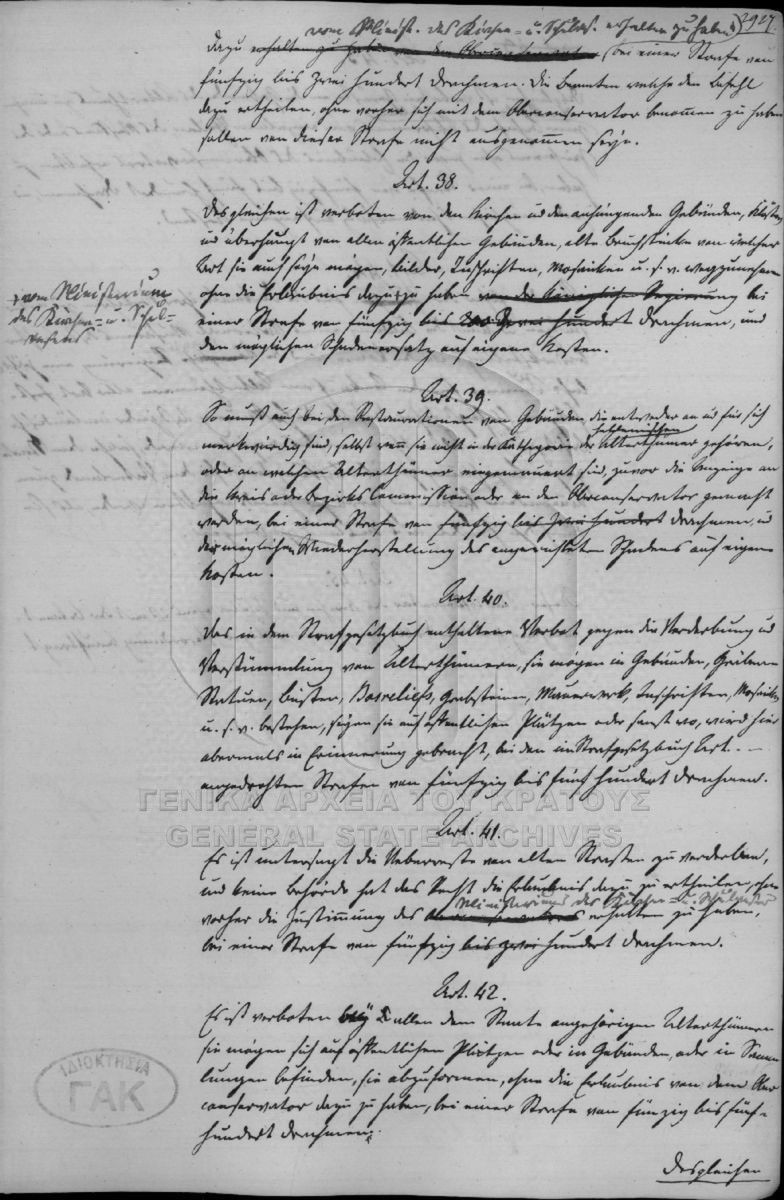 vom Minist. des Kirchen- u. Schulws. erhalten zu haben
2927.
dazu erhalten zu haben von dem Oberconservator, bei einer Strafe von
fünfzig bis zwei hundert Drachmen. Die Beamten welche den Befehl
dazu ertheilen, ohne vorher sich mit dem Oberconservator benommen zu haben
sollen von dieser Strafe nicht ausgenommen seyn.
Art. 38.
Desgleichen ist verboten von den Kirchen und den anhängenden Gebäuden, Klöstern,
und überhaupt von allen öffentlichen Gebäuden, alte Bruchstücke von welcher
Art sie auch seyn mögen, Bilder, Inschriften, Mosaiken u. s. w. wegzunehmen
ohne die Erlaubnis dazu zu haben von der Königlichen Regierung bei
einer Strafe von fünfzig bis zwei hundert Drachmen, und
dem möglichen Schadenersatz auf eigene Kosten.
+ vom Ministerium
des Kirchen- u. Schul-
wesens
Art. 39.
So muß auch bei den Restaurationen von Gebäuden, die entweder an und für sich
hellenischen
merkwürdig sind, selbst wenn sie nicht in die Kathegorie der Alterthümer gehören,
oder an welchen Alterthümer eingemauert sind, zuvor die Anzeige an
die Kreis oder Bezirks Commission oder an den Oberconservator gemacht
werden, bei einer Strafe von fünfzig bis zwei hundert Drachmen, und
der möglichen Wiederherstellung des angerichteten Schadens auf eigene
Kosten.
Art. 40.
Das in dem Strafgesetzbuch enthaltene Verbot gegen die Verderbung und
Verstümmlung von Alterthümern, sie mögen in Gebäuden, Gräbern
Statuen, Büsten, Basreliefs, Grabsteinen, Mauerwerk, Inschriften, Mosaiken
u. s. w. bestehen, seyen sie auf öffentlichen Plätzen oder sonst wo, wird hier
abermals in Erinnerung gebracht, bei den im Strafgesetzbuch Art. . –
angedrohten Strafen von fünfzig bis fünf hundert Drachmen.
ΓΕΝΙΚΑ ΑΡΧΕΙΑ ΤΟΥ ΚΡΑΤΟΥΣ
GENERAL STATE ARCHIVES
Art. 41.
Es ist untersagt die Ueberreste von alten Straßen zu verderben,
und keine Behörde hat das Recht die Erlaubnis dazu zu ertheilen, ohne
Ministeriums des Kirchen- u. Schulwesens
vorher die Zustimmung des Oberconservators erhalten zu haben,
bei einer Strafe von fünfzig bis zwei hundert Drachmen.
Art. 42.
Es ist verboten bey allen dem Staate angehörigen Alterthümern
sie mögen sich auf öffentlichen Plätzen oder in Gebäuden, oder in Samm-
lungen befinden, sie abzuformen, ohne die Erlaubnis von dem Ober-
conservator dazu zu haben, bei einer Strafe von fünfzig bis fünf-
hundert Drachmen.
ΙΔΙΟΚΤΗΣΙΑ
ΓΑΚ
Desgleichen